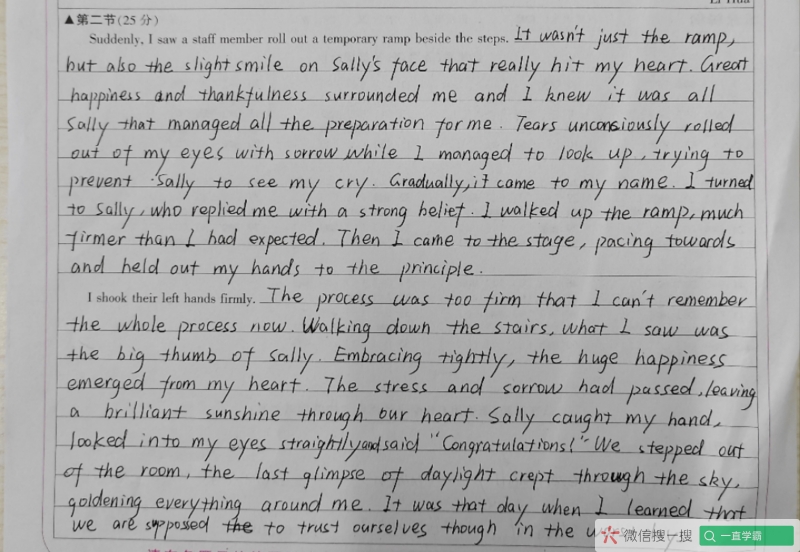 Li Hua
▲第二节(25 分)
Suddenly, I saw a staff member roll out a temporary ramp beside the steps. It wasn't just the ramp,
but also the slight smile on Sally's face that really hit my heart. Great
happiness and thankfulness surrounded me and I knew it was all
Sally that managed all the preparation for me. Tears unconsiously rolled
out of my eyes with sorrow while I managed to look up, trying to
prevent Sally to see my cry. Gradually, it came to my name. I turned
to Sally, who replied me with a strong belief. I walked up the ramp, much
firmer than I had expected. Then I came to the stage, pacing towards
and held out my hands to the principle.
I shook their left hands firmly. The process was too firm that I can't remember
the whole process now. Walking down the stairs, what I saw was
the big thumb of Sally. Embracing tightly, the huge happiness
emerged from my heart. The stress and sorrow had passed, leaving
a brilliant sunshine through our heart. Sally caught my hand,
looked into my eyes straightly and said "Congratulations!" We stepped out
of the room, the last glimpse of daylight crept through the sky,
goldening everything around me. It was that day when I learned that
we are supposed the to trust ourselves though in the
微信搜一搜
一直学霸